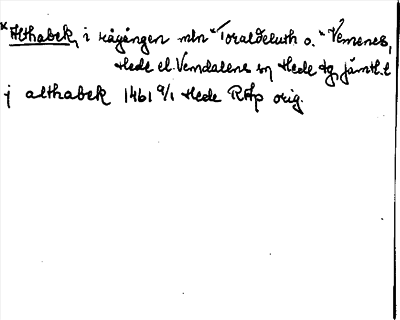 *Althabek, i rågången mln *Toraldeluth o. *Vemenes,
Hede el. Vemdalens sn Hede tg, Jämtl. l
j althabek 1461 9/1 Hede RAp orig.